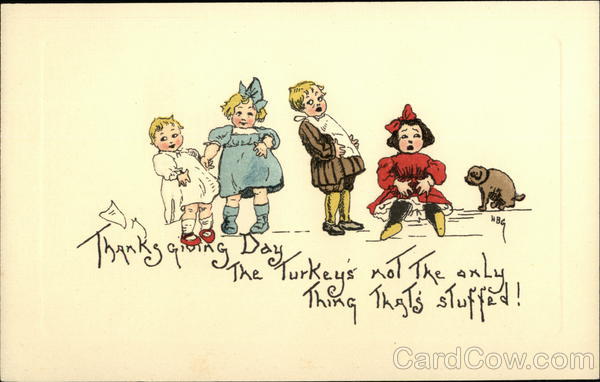 HBG
Thanksgiving Day
The Turkey's not The only
Thing That's stuffed!
CardCow.com